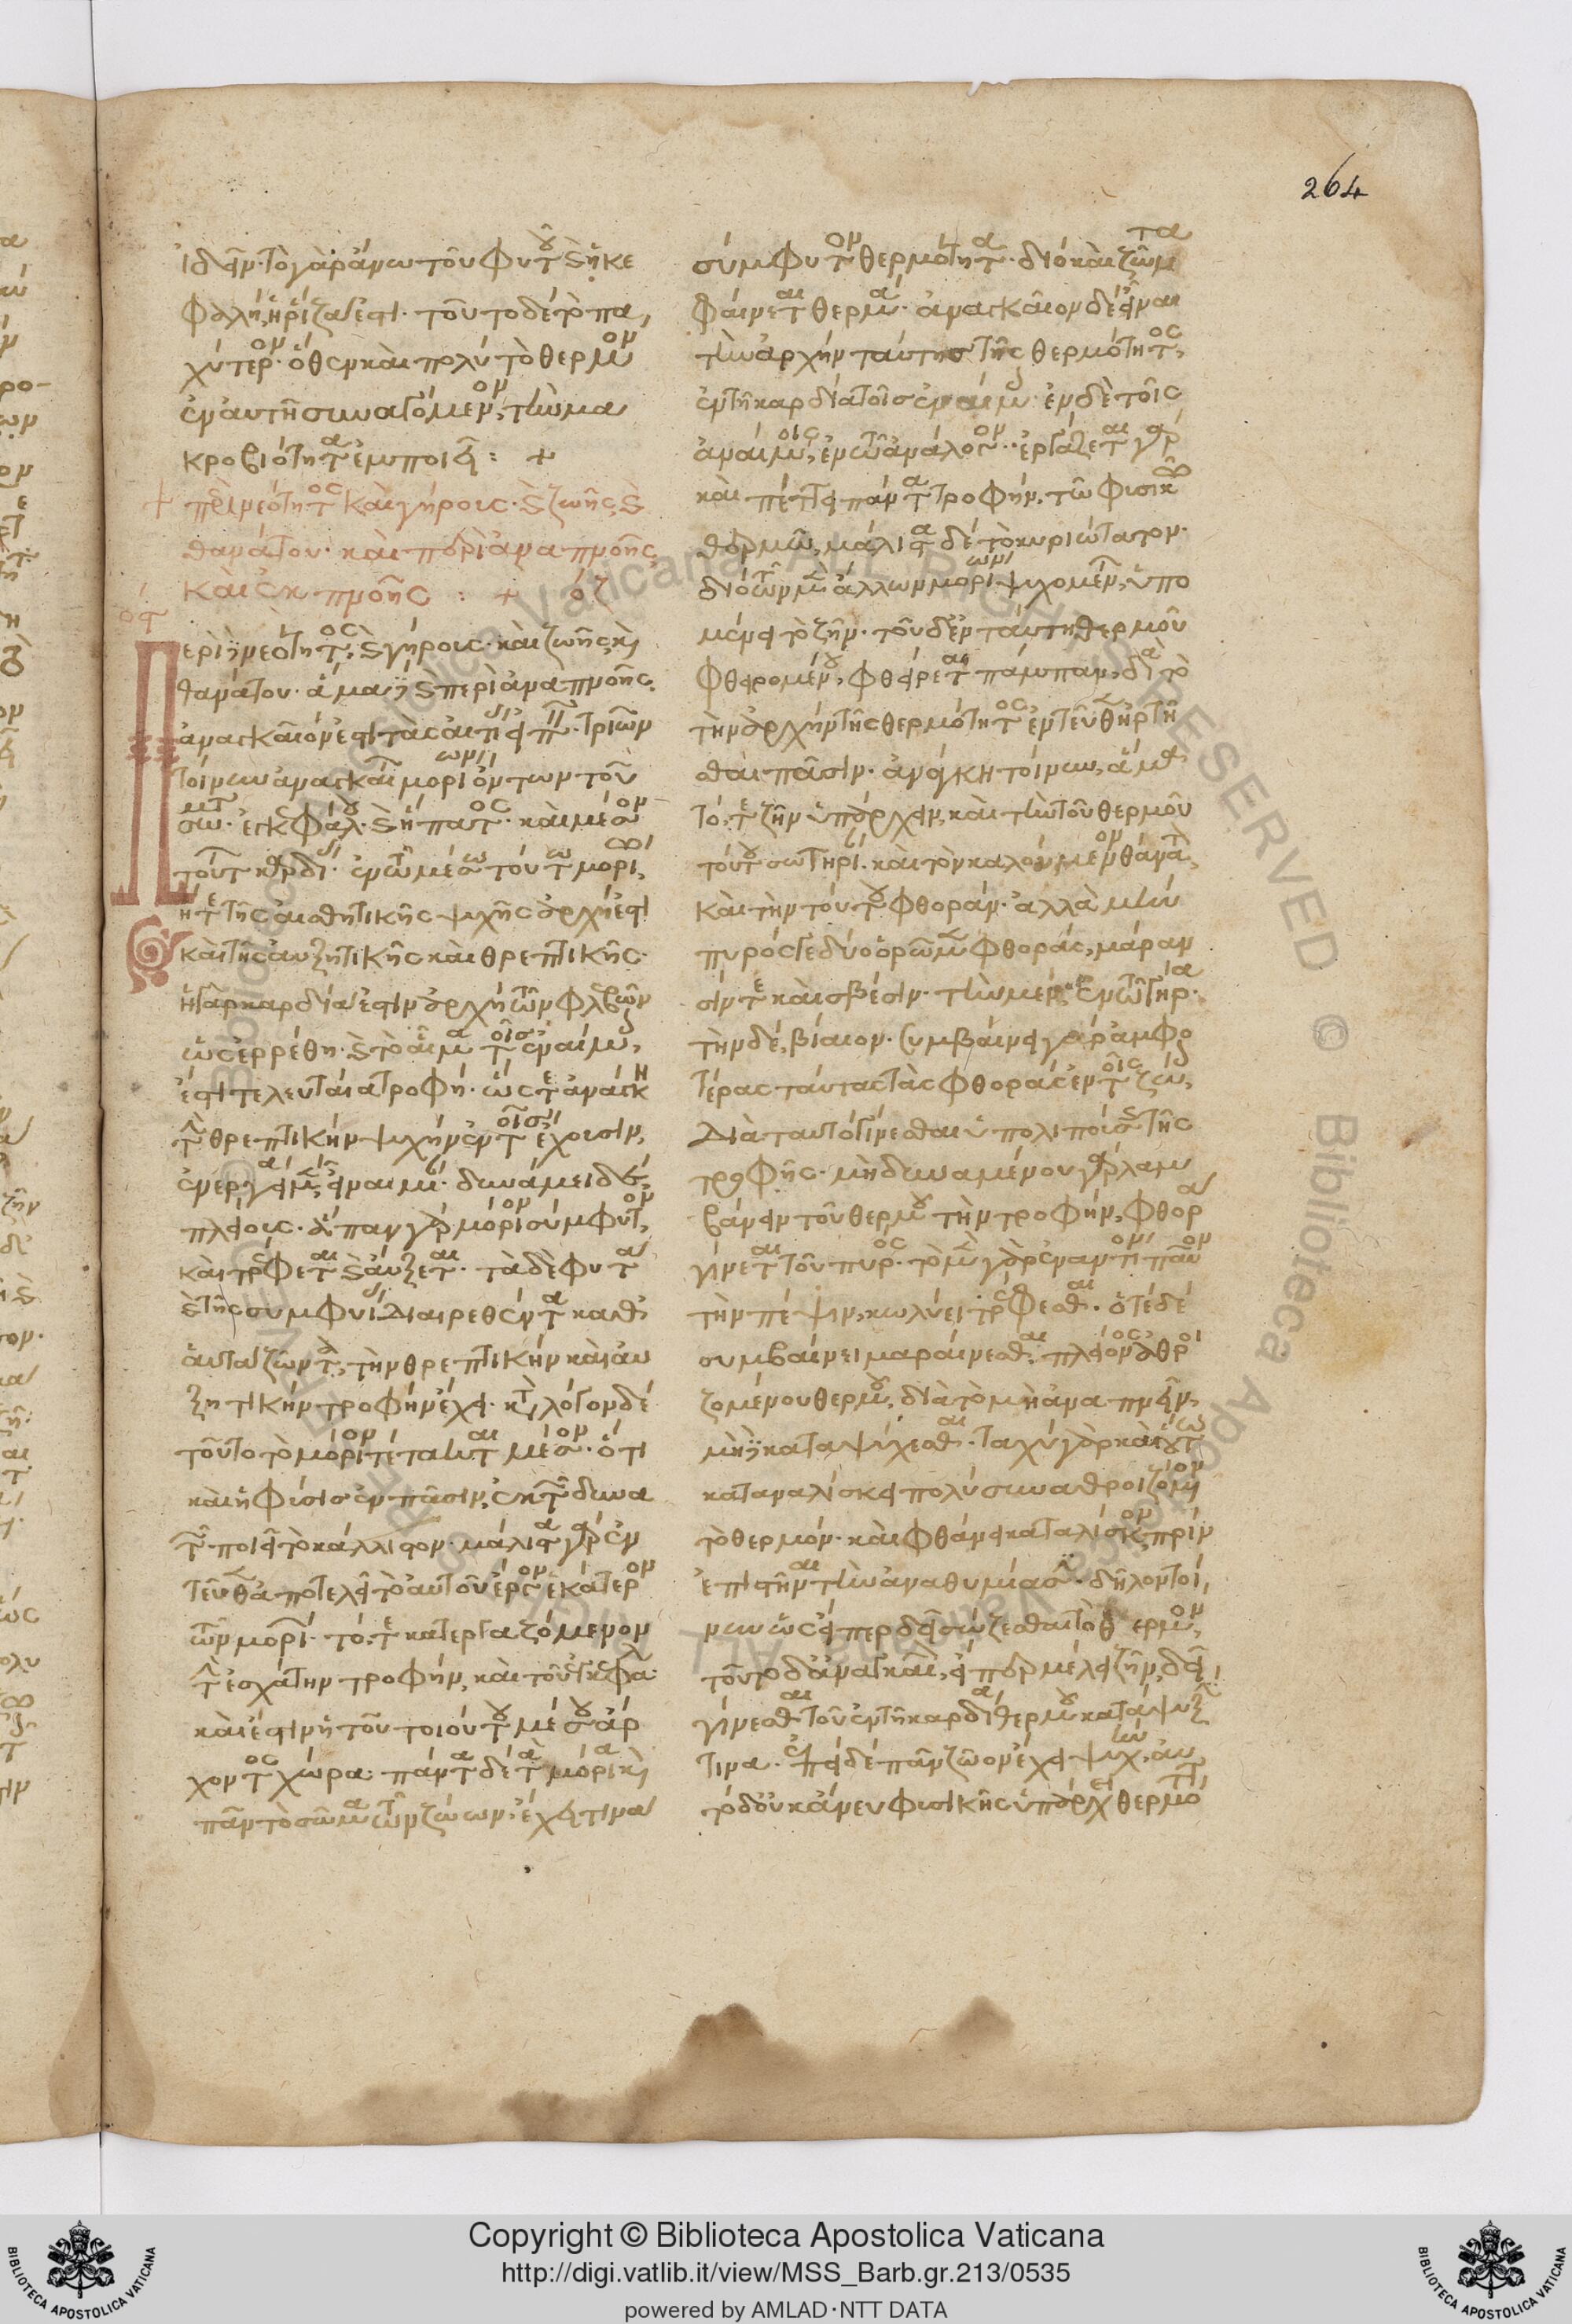 264
ἰδεῖν· τὸ γὰρ ἄνω τοῦ φυτοῦ καὶ ἡ κε
φαλὴ, ἡ ῥίζα ἐστί· τοῦτο δὲ τὸ πα
χύτερον· ὅθεν καὶ πολὺ τὸ θερμὸν
ἐν αὐτῇ συναγόμενον, τὴν μα
κροβιότητα ἐμποιεῖ : +
+ περὶ νεότητος καὶ γήρους· καὶ ζωῆς, καὶ
θανάτου· καὶ περὶ ἀναπνοῆς
καὶ ἐκπνοῆς : +
Περὶ νεότητος, καὶ γήρους· καὶ ζωῆς, καὶ
θανάτου· ἅμα καὶ περὶ ἀναπνοῆς,
ἀναγκαῖον ἐστὶ τὰς αἰτίας εἰπεῖν· τριῶν
τοίνυν ἀναγκαίων μορίων ὄντων τοῦ
σώματος· ἐγκεφάλου· καὶ ἥπατος· καὶ μέσον
τούτων καρδίας· ἐν τῷ μέσῳ τούτῳ μορίῳ,
ἥ τε τῆς αἰσθητικῆς ψυχῆς ἀρχή ἐστι
καὶ τῆς αὐξητικῆς καὶ θρεπτικῆς·
ἡ γὰρ καρδία ἐστὶν ἀρχὴ τῶν φλεβῶν
ὡς ἐρρέθη· καὶ τὸ αἷμα τοῖς ἐναίμοις,
ἐστὶ τελευταία τροφή· ὥς τε ἀνάγκη
τὴν θρεπτικὴν ψυχὴν ἐν τοῖς ἔχουσιν,
ἐνεργείᾳ μὲν, εἶναι μίαν· δυνάμει δὲ,
πλείους· ἅπαν γὰρ μόριον σύμφυτον,
καὶ τρέφεται καὶ αὔξεται· τὰ δὲ φυτὰ
καὶ τῆς συμφυΐας διαιρεθέντα καθ'
αὑτὰ ζῶντα, τὴν θρεπτικὴν καὶ αὐ
ξητικὴν τροφὴν ἔχει· κατὰ λόγον δὲ
τοῦτο τὸ μόριον τέτακται μέσον· ὅτι
καὶ ἡ φύσις ἐν πᾶσιν, ἐκ τῶν δυνα
τῶν ποιεῖ τὸ κάλλιστον· μάλιστα γὰρ ἐν
τεῦθα ἀποτελεῖ τὸ αὐτοῦ ἔργον ἑκάτερον
τῶν μορίων· τό, τε κατεργαζόμενον
τὴν ἐσχάτην τροφὴν, καὶ τοῦ ἐγκεφάλου·
καὶ ἔστιν ἡ τοῦ τοιούτου μέσου ἄρ
χοντος χώρα· πάντα δὲ τὰ μόρια καὶ
πᾶν τὸ σῶμα τῶν ζώων, ἔχει τινα
σύμφυτον θερμότητα· διὸ καὶ ζῶντα
φαίνεται θερμά· ἀναγκαῖον δὲ εἶναι
τὴν ἀρχὴν ταύτης τῆς θερμότητος,
ἐν τῇ καρδίᾳ τοῖς ἐναίμοις· ἐν δὲ τοῖς
ἀναίμοις, ἐν τῷ ἀνάλογον· ἐργάζεται γὰρ
καὶ πέττει πάντα τροφὴν, τῷ φυσικῷ
θερμῷ, μάλιστα δὲ τὸ κυριώτατον·
διὸ τῶν μὲν ἄλλων μορίων ψυχομένων, ὑπο
μένει τὸ ζῆν· τοῦ δ' ἐν ταύτῃ θερμοῦ
φθειρομένου, φθείρεται πάμπαν, διὰ τὸ
τὴν ἀρχὴν τῆς θερμότητος ἐντεῦθεν ἠρτῆ
σθαι πᾶσιν· ἀνάγκη τοίνυν, ἅμα
τό, τε ζῆν ὑπάρχειν, καὶ τὴν τοῦ θερμοῦ
τούτου σωτηρίαν· καὶ τὸν καλούμενον θάνατον,
καὶ τὴν τούτου φθοράν· ἀλλὰ μὴν
πυρός γε δύο ὁρῶμεν φθοράς, μάραν
σίν τε καὶ σβέσιν· τὴν μὲν, ἐν τῷ γήρᾳ·
τὴν δὲ, βίαιον· συμβαίνει γὰρ ἀμφο
τέρας ταύτας τὰς φθορὰς ἐν τοῖς ζώοις,
διὰ ταυτὸ γίνεσθαι ὑπολιπούσης τῆς
τροφῆς· μὴ δυναμένου γὰρ λαμ
βάνειν τοῦ θερμοῦ τὴν τροφὴν, φθορὰ
γίνεται τοῦ πυρός· τὸ μὲν γὰρ ἐναντίον παῦον
τὴν πέψιν, κωλύει τρέφεσθαι· ὁτὲ δὲ
συμβαίνει μαραίνεσθαι πλείονος ἀθροι
ζομένου θερμοῦ, διὰ τὸ μὴ ἀναπνεῖν,
μὴ καὶ καταψύχεσθαι· ταχὺ γὰρ καὶ οὕτω
καταναλίσκει πολὺ συναθροιζόμενον
τὸ θερμόν· καὶ φθάνει καταλίσκον πρὶν
ἐπιστῆναι τὴν ἀναθυμίασιν· δῆλον τοί
νυν ὡς εἴπερ δεῖ σώζεσθαι τὸ θερμὸν,
τοῦτο δ' ἀναγκαῖον, εἴπερ μέλει ζῆν, δεῖ
γίνεσθαι τοῦ ἐν τῇ καρδίᾳ θερμοῦ κατάψυξίν
τινα· ἐπεὶ δὲ πᾶν ζῶον ἔχει ψυχὴν, αὐ
τὸ δ' οὐκ ἄνευ φυσικῆς ὑπάρχει θερμό